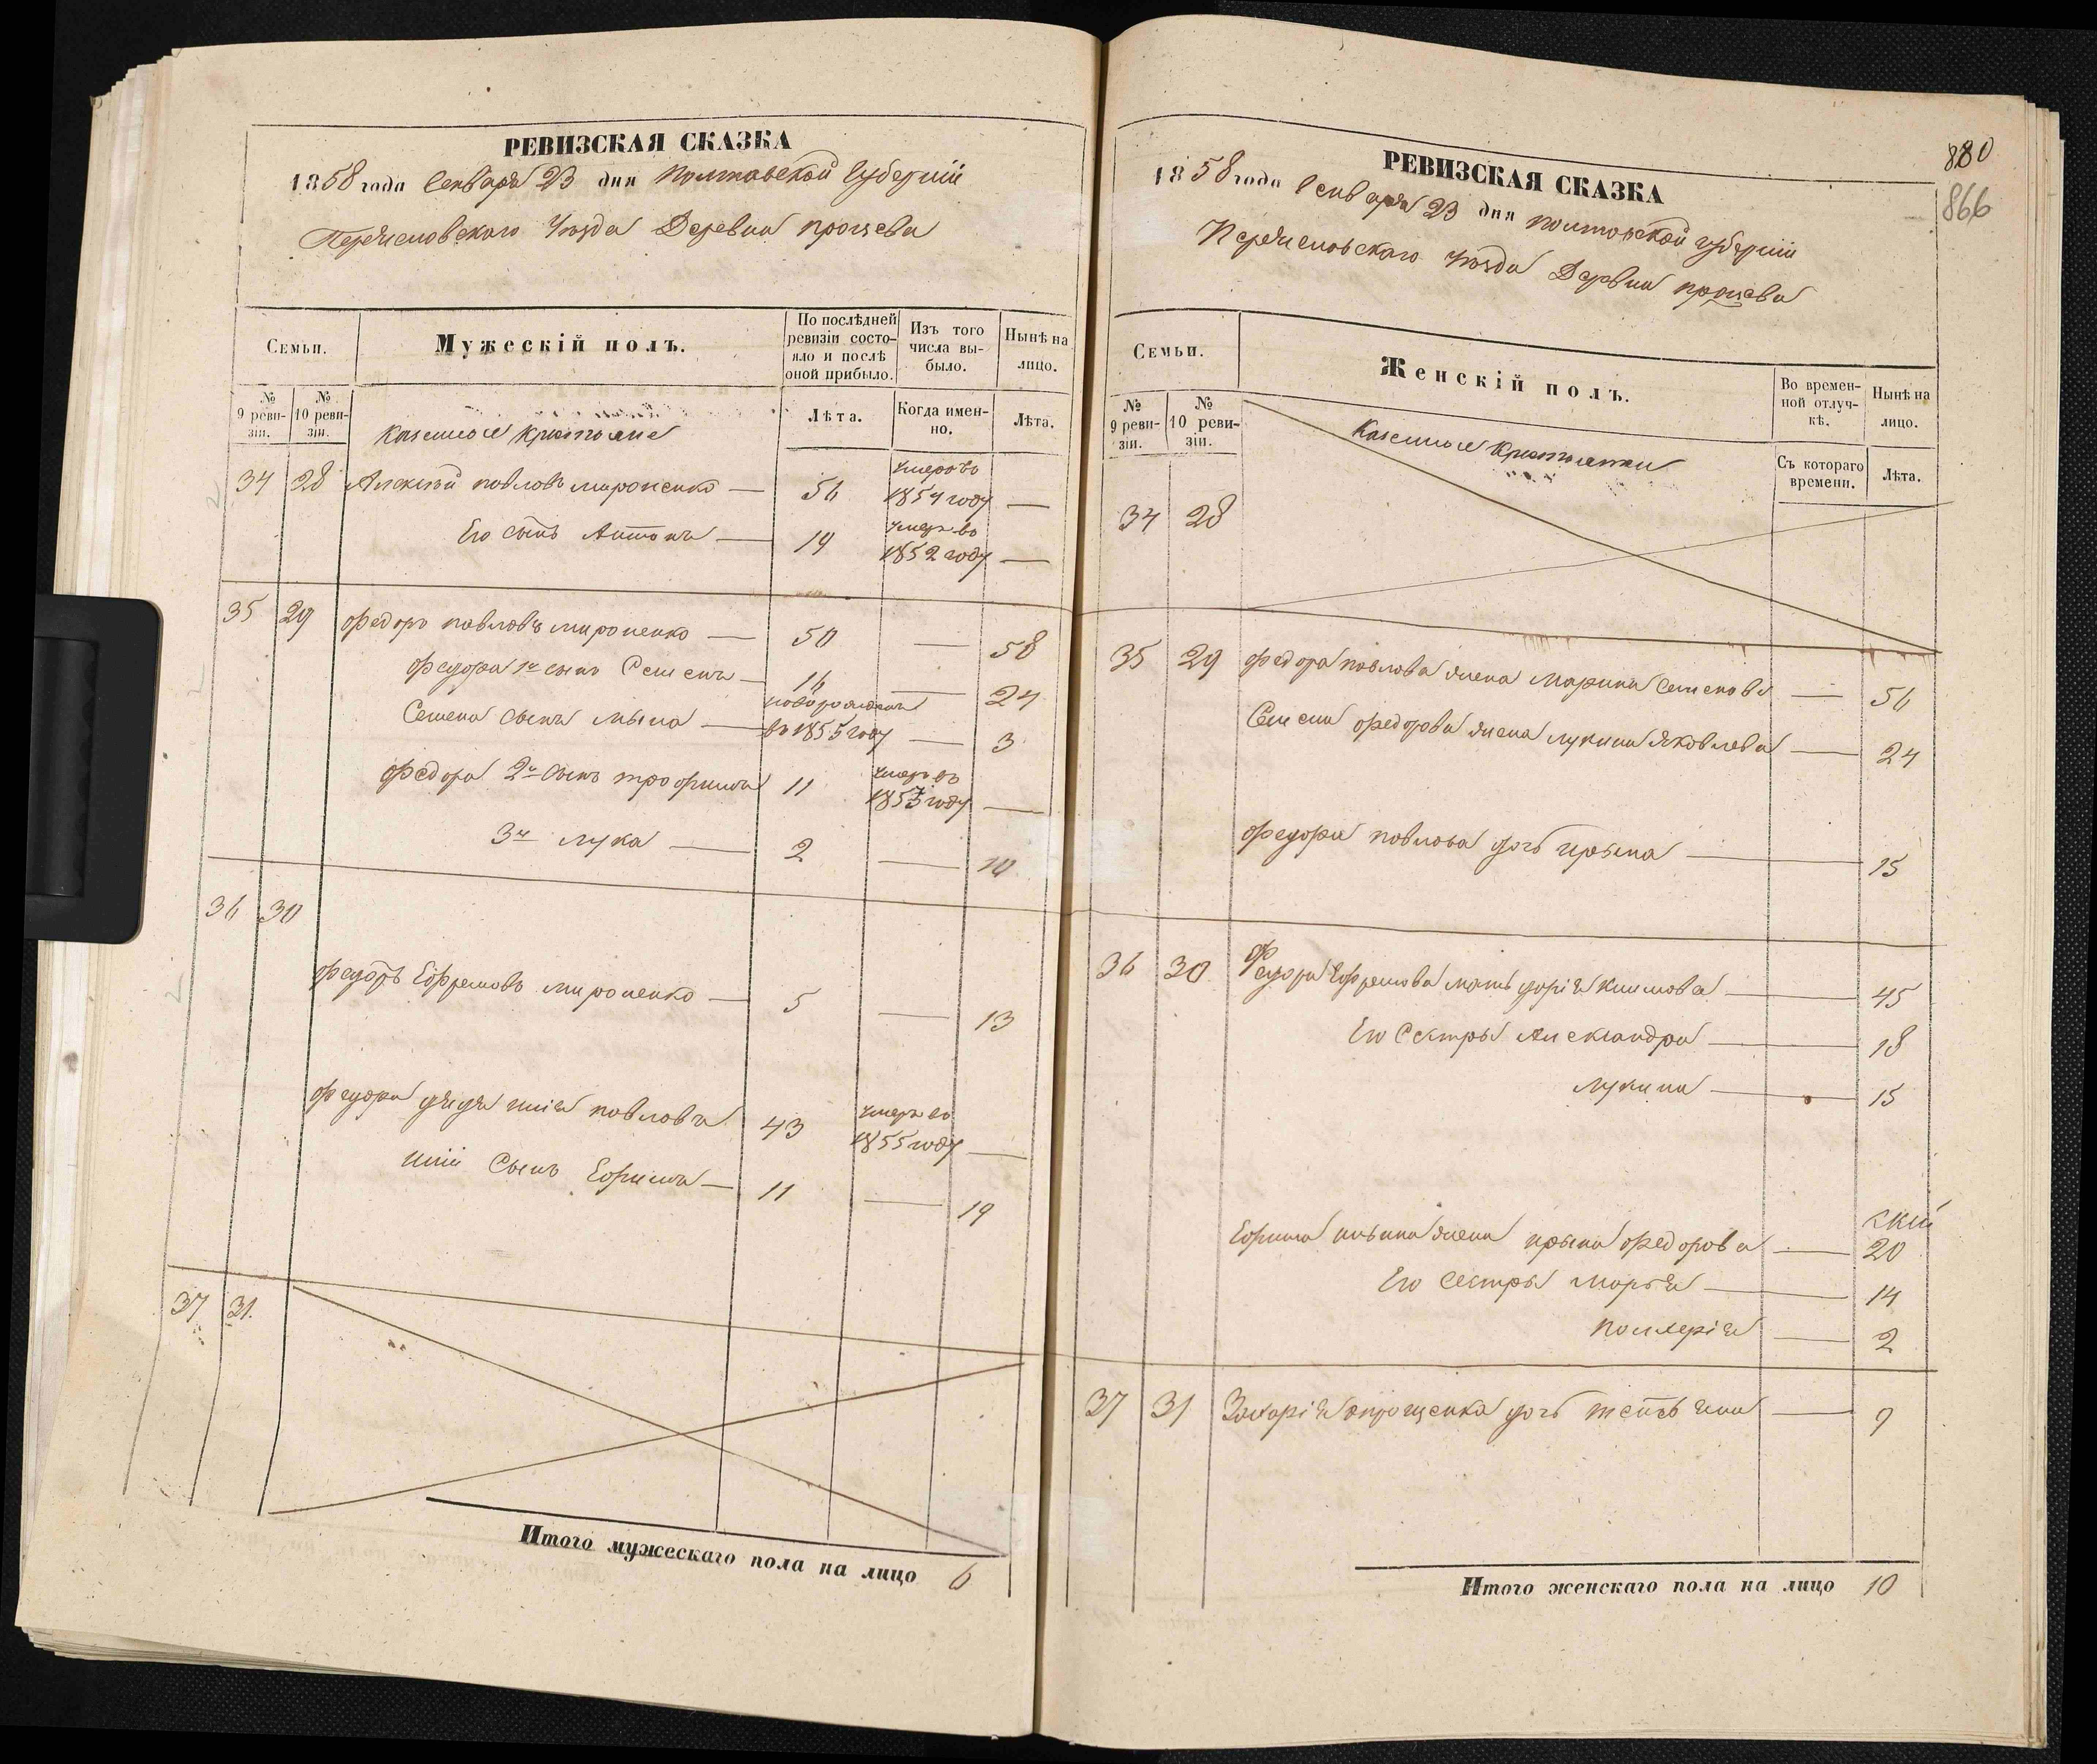 РЕВИЗСКАЯ СКАЗКА
1858 года Генваря 23 дня Полтавской Губернии
Переяславского Уезда Деревни Процева
Семьи.
Мужескій полъ.
По послѣдней ревизіи состояло и послѣ оной прибыло.
Изъ того числа выбыло.
Нынѣ на лицо.
№ 9 ревизіи.
№ 10 ревизіи.
Казенные Крестьяне
Лѣта.
Когда именно.
Лѣта.
34 28 Алексѣй Павловъ Мироненко — 56 умеръ въ 1854 году —
Его сынъ Антонъ — 19 умеръ въ 1852 году —
35 29 Федоръ Павловъ Мироненко — 50 — 58
Федора 1й сынъ Семенъ — 16 — 24
Семена сынъ — новорожденъ въ 1855 году — 3
Федора 2й сынъ Трофимъ 11 умеръ въ году —
3й Лука — 2 — 10
36 30
Федоръ Ефремовъ Мироненко — 5 — 13
Федора дядя Илія Павловъ 43 умеръ въ 1855 году —
Иліи Сынъ Ефимъ — 11 — 19
37 31.
Итого мужескаго пола на лицо 6
880
866
РЕВИЗСКАЯ СКАЗКА
1858 года Генваря 23 дня Полтавской Губернии
Переяславского Уезда Деревни Процева
Семьи.
Женскій полъ.
Во временной отлучкѣ.
Нынѣ на лицо.
№ 9 ревизіи.
№ 10 ревизіи.
Казенные Крестьянки
Съ котораго времени.
Лѣта.
34 28
35 29 Федора Павлова жена Марина Семенова — 56
Семена Федорова жена Лукина Яковлева — 24
Федора Павлова дочь Ирына — 15
36 30 Федора Ефремова мать Дарія Климова — 45
Его Сестры Александра — 18
Лукина — 15
Ефима жена Ирына Федорова — 20
Его Сестры Марья — 14
— 2
37 31 Захарія дочь — 9
Итого женскаго пола на лицо 10